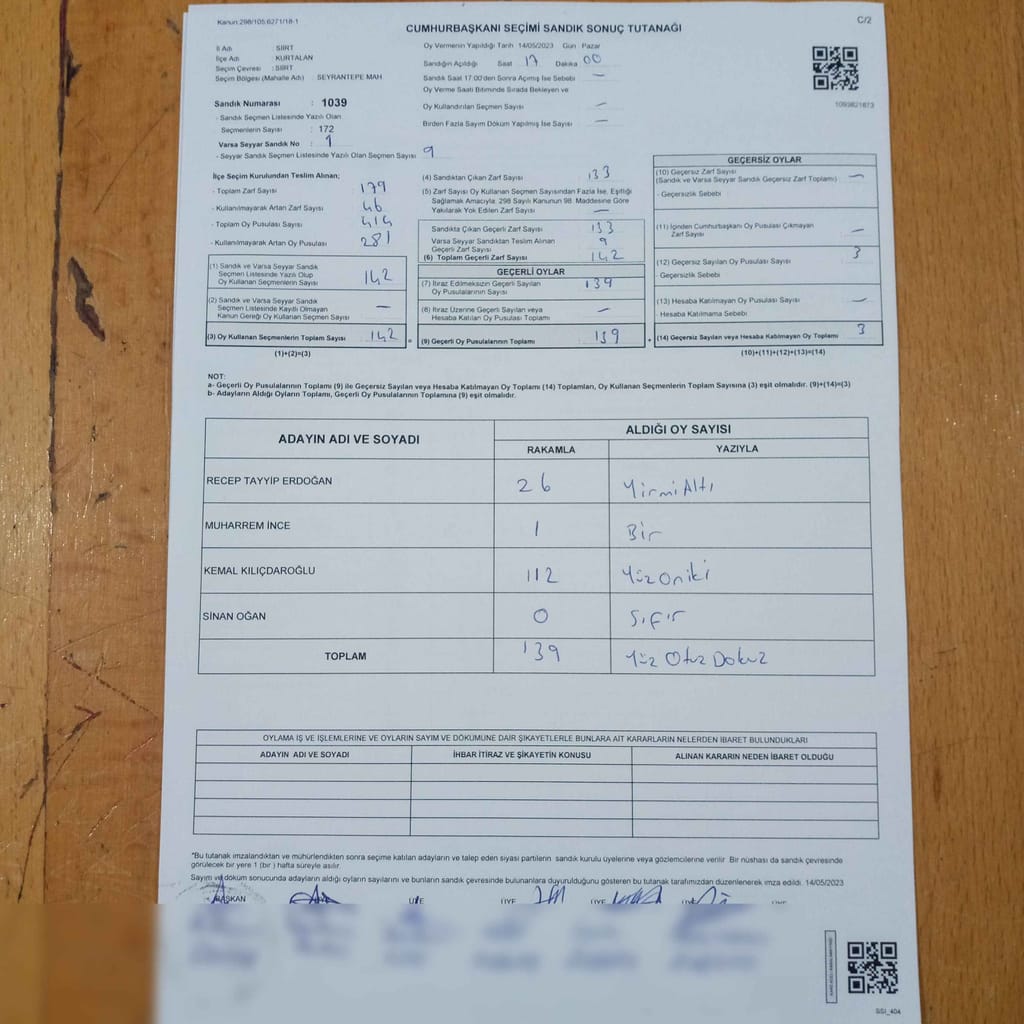 Kanun:298/105,6271/18-1
C/2
CUMHURBAŞKANI SEÇİMİ SANDIK SONUÇ TUTANAĞI
İl Adı : SİİRT
İlçe Adı : KURTALAN
Seçim Çevresi : SİİRT
Seçim Bölgesi (Mahalle Adı) SEYRANTEPE MAH
Sandık Numarası : 1039
- Sandık Seçmen Listesinde Yazılı Olan
Seçmenlerin Sayısı : 172
Varsa Seyyar Sandık No : 1
- Seyyar Sandık Seçmen Listesinde Yazılı Olan Seçmen Sayısı 9
Oy Vermenin Yapıldığı Tarih 14/05/2023 Gün Pazar
Sandığın Açıldığı Saat 17 Dakika 00
Sandık Saat 17:00'den Sonra Açımış İse Sebebi —
Oy Verme Saati Bitiminde Sırada Bekleyen ve
Oy Kullandırılan Seçmen Sayısı —
Birden Fazla Sayım Döküm Yapılmış İse Sayısı —
1093821873
İlçe Seçim Kurulundan Teslim Alınan;
- Toplam Zarf Sayısı 179
- Kullanılmayarak Artan Zarf Sayısı 46
- Toplam Oy Pusulası Sayısı 414
- Kullanılmayarak Artan Oy Pusulası 281
(1) Sandık ve Varsa Seyyar Sandık
Seçmen Listesinde Yazılı Olup
Oy Kullanan Seçmenlerin Sayısı 142
(2) Sandık ve Varsa Seyyar Sandık
Seçmen Listesinde Kayıtlı Olmayan
Kanun Gereği Oy Kullanan Seçmen Sayısı —
(3) Oy Kullanan Seçmenlerin Toplam Sayısı 142
(1)+(2)=(3)
(4) Sandıktan Çıkan Zarf Sayısı 133
(5) Zarf Sayısı Oy Kullanan Seçmen Sayısından Fazla İse, Eşitliği
Sağlamak Amacıyla, 298 Sayılı Kanunun 98. Maddesine Göre
Yakılarak Yok Edilen Zarf Sayısı —
Sandıkta Çıkan Geçerli Zarf Sayısı 133
Varsa Seyyar Sandıktan Teslim Alınan
Geçerli Zarf Sayısı 9
(6) Toplam Geçerli Zarf Sayısı 142
GEÇERLİ OYLAR
(7) İtiraz Edilmeksizin Geçerli Sayılan
Oy Pusulalarının Sayısı 139
(8) İtiraz Üzerine Geçerli Sayılan ve
Hesaba Katılan Oy Pusulası Toplamı —
= (9) Geçerli Oy Pusulalarının Toplamı 139 +
GEÇERSİZ OYLAR
(10) Geçersiz Zarf Sayısı
(Sandık ve Varsa Seyyar Sandık Geçersiz Zarf Toplamı) —
- Geçersizlik Sebebi
(11) İçinden Cumhurbaşkanı Oy Pusulası Çıkmayan
Zarf Sayısı —
(12) Geçersiz Sayılan Oy Pusulası Sayısı 3
- Geçersizlik Sebebi
(13) Hesaba Katılmayan Oy Pusulası Sayısı —
- Hesaba Katılmama Sebebi
(14) Geçersiz Sayılan veya Hesaba Katılmayan Oy Toplamı 3
(10)+(11)+(12)+(13)=(14)
NOT:
a- Geçerli Oy Pusulalarının Toplamı (9) ile Geçersiz Sayılan veya Hesaba Katılmayan Oy Toplamı (14) Toplamları, Oy Kullanan Seçmenlerin Toplam Sayısına (3) eşit olmalıdır. (9)+(14)=(3)
b- Adayların Aldığı Oyların Toplamı, Geçerli Oy Pusulalarının Toplamına (9) eşit olmalıdır.
ADAYIN ADI VE SOYADI ALDIĞI OY SAYISI
RAKAMLA YAZIYLA
RECEP TAYYİP ERDOĞAN 26 Yirmi Altı
MUHARREM İNCE 1 Bir
KEMAL KILIÇDAROĞLU 112 Yüz Oniki
SİNAN OĞAN 0 Sıfır
TOPLAM 139 Yüz Otuz Dokuz
OYLAMA İŞ VE İŞLEMLERİNE VE OYLARIN SAYIM VE DÖKÜMÜNE DAİR ŞİKAYETLERLE BUNLARA AİT KARARLARIN NELERDEN İBARET BULUNDUKLARI
ADAYIN ADI VE SOYADI İHBAR İTİRAZ VE ŞİKAYETİN KONUSU ALINAN KARARIN NEDEN İBARET OLDUĞU
"Bu tutanak imzalandıktan ve mühürlendikten sonra seçime katılan adayların ve talep eden siyasi partilerin sandık kurulu üyelerine veya gözlemcilerine verilir. Bir nüshası da sandık çevresinde
görülecek bir yere 1 (bir) hafta süreyle asılır.
Sayım ve döküm sonucunda adayların aldığı oyların sayılarını ve bunların sandık çevresinde bulunanlara duyurulduğunu gösteren bu tutanak tarafımızdan düzenlenerek imza edildi. 14/05/2023
BAŞKAN ÜYE ÜYE ÜYE ÜYE ÜYE
SSİ_40A